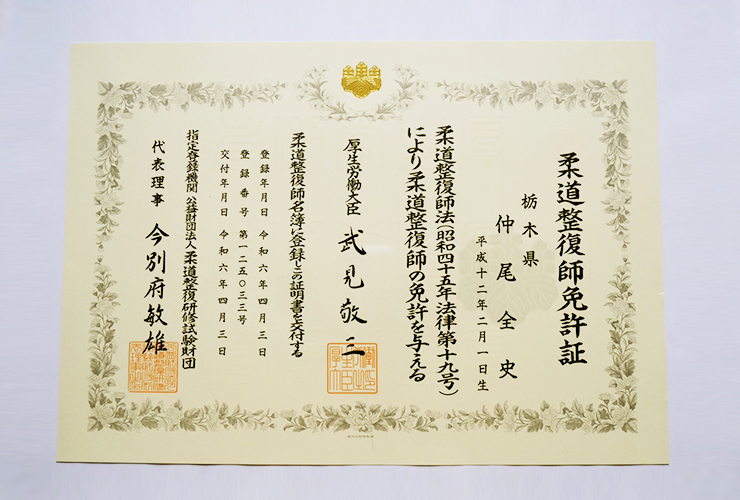 柔道整復師免許証
栃木県
仲尾全史
平成十二年二月一日生
柔道整復師法(昭和四十五年法律第十九号)
により柔道整復師の免許を与える
厚生労働大臣 武見敬三
柔道整復師名簿に登録しこの証明書を交付する
登録年月日 令和六年四月三日
登録番号 第一二五〇三三号
交付年月日 令和六年四月三日
指定登録機関 公益財団法人柔道整復研修試験財団
代表理事 今別府敏雄